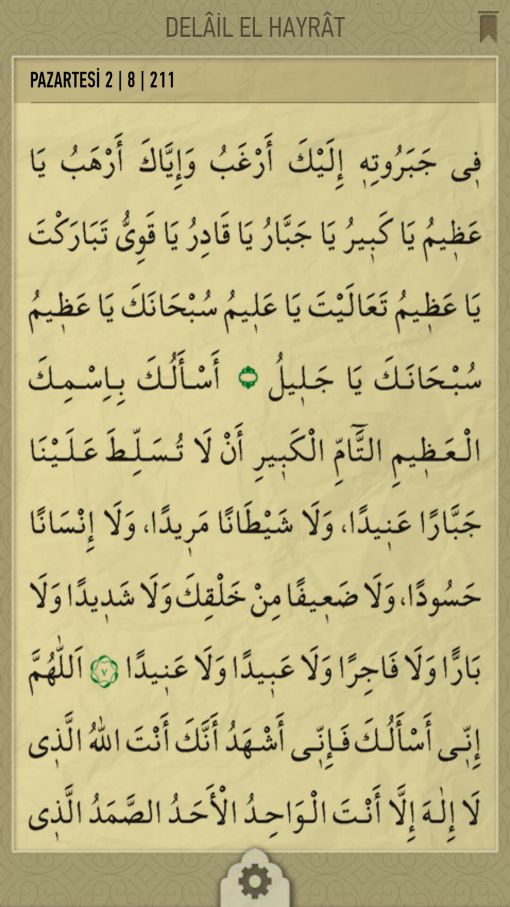 DELÂİL EL HAYRÂT
PAZARTESİ 2 | 8 | 211
فِى جَبَرُوتِهِ إِلَيْكَ أَرْغَبُ وَإِيَّاكَ أَرْهَبُ يَا
عَظِيمُ يَا كَبِيرُ يَا جَبَّارُ يَا قَادِرُ يَا قَوِىُّ تَبَارَكْتَ
يَا عَظِيمُ تَعَالَيْتَ يَا عَلِيمُ سُبْحَانَكَ يَا عَظِيمُ
سُبْحَانَكَ يَا جَلِيلُ أَسْأَلُكَ بِاِسْمِكَ
الْعَظِيمِ التَّامِّ الْكَبِيرِ أَنْ لَا تُسَلِّطَ عَلَيْنَا
جَبَّارًا عَنِيدًا، وَلَا شَيْطَانًا مَرِيدًا، وَلَا إِنْسَانًا
حَسُودًا، وَلَا ضَعِيفًا مِنْ خَلْقِكَ وَلَا شَدِيدًا وَلَا
بَارًّا وَلَا فَاجِرًا وَلَا عَبِيدًا وَلَا عَنِيدًا ٧ اَللّٰهُمَّ
إِنِّى أَسْأَلُكَ فَإِنِّى أَشْهَدُ أَنَّكَ أَنْتَ اللّٰهُ الَّذِى
لَا إِلٰهَ إِلَّا أَنْتَ الْوَاحِدُ الْأَحَدُ الصَّمَدُ الَّذِى